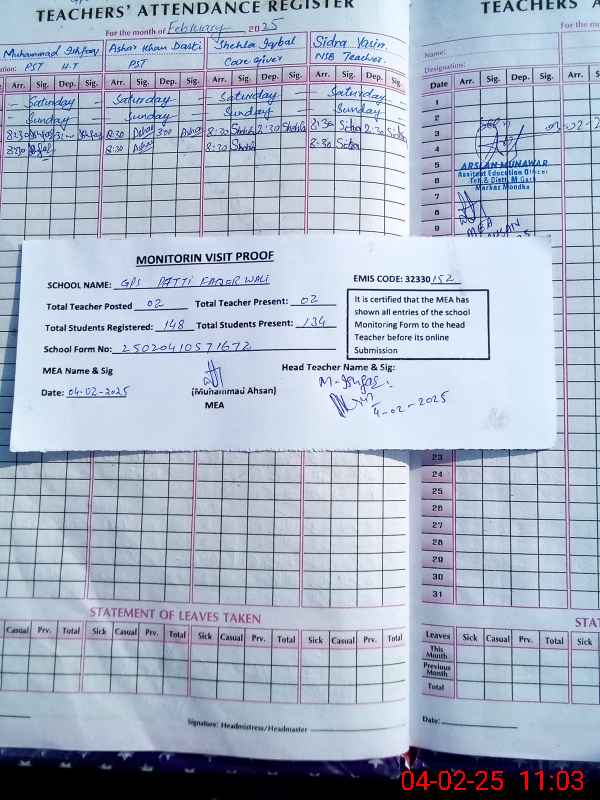 TEACHERS' ATTENDANCE REGISTER
For the month of February 2025
Muhammad Ishfaq Ashar Khan Dasti Shehla Iqbal Sidra Yasin
PST H.T PST Care giver NSB Teacher
Arr. Sig. Dep. Sig. Arr. Sig. Dep. Sig. Arr. Sig. Dep. Sig. Arr. Sig. Dep. Sig.
Saturday Saturday Saturday Saturday
Sunday Sunday Sunday Sunday
8:30 8:30 3:00 8:30 2:30 8:30 2:30
8:30 8:30 8:30 8:30
TEACHERS' ATTEND
For the mo
Name:
Designation:
Date Arr. Sig. Dep. Sig. Arr. S
1
2
3
4
5
ARSLAN MUNAWAR
Assistant Education Officer
Markaz Mondka
6
7
8
9
MEA
MONITORIN VISIT PROOF
SCHOOL NAME: GPS PATTI FAQEER WALI EMIS CODE: 32330152
Total Teacher Posted 02 Total Teacher Present: 02
Total Students Registered: 148 Total Students Present: 134
School Form No: 25020410571672
It is certified that the MEA has
shown all entries of the school
Monitoring Form to the head
Teacher before its online
Submission
MEA Name & Sig Head Teacher Name & Sig:
Date: 04-02-2025 (Muhammad Ahsan)
MEA
4-02-2025
23
24
25
26
27
28
29
30
31
STATEMENT OF LEAVES TAKEN
Casual Prv. Total Sick Casual Prv. Total Sick Casual Prv. Total Sick Casual Prv. Total
Signature: Headmistress/Headmaster
STA
Leaves Sick Casual Prv. Total Sick
This Month
Previous Month
Total
Date:
04-02-25 11:03